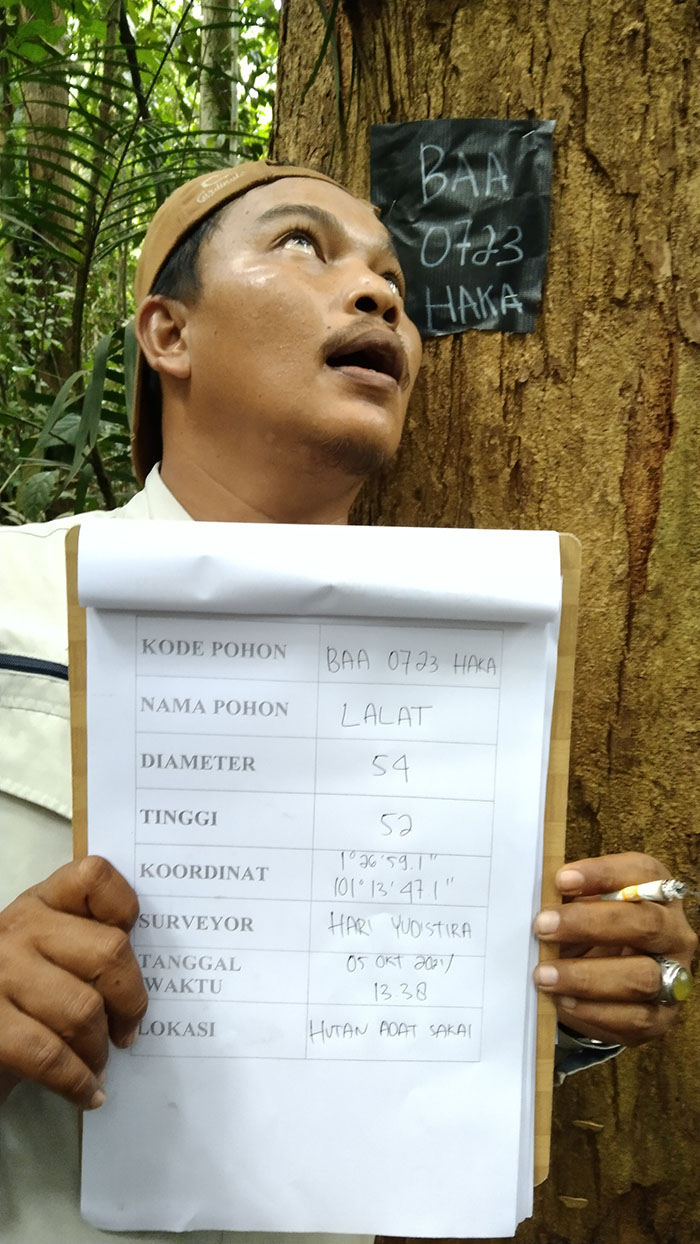 Cardinals
BAA
0723
HAKA
KODE POHON BAA 0723 HAKA
NAMA POHON LALAT
DIAMETER 54
TINGGI 52
KOORDINAT 1°26'59.1"
101°13'47.1"
SURVEYOR HARI YUDISTIRA
TANGGAL 05 OKT 2021/
WAKTU 13.38
LOKASI HUTAN ADAT SAKAI